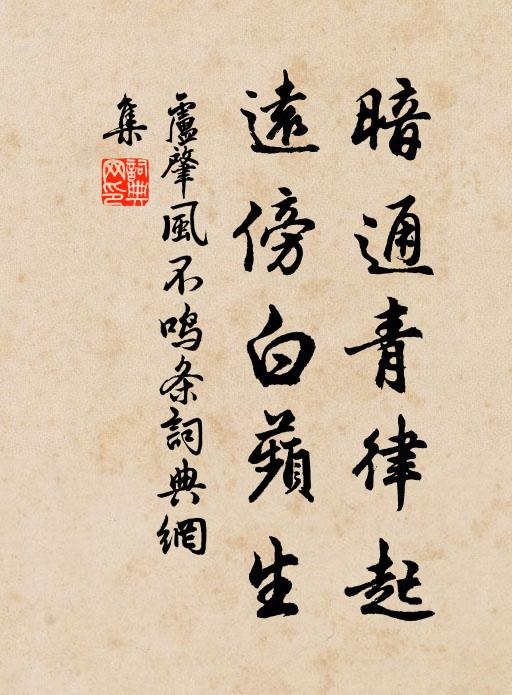 暗通青律起
遠傍白蘋生
盧肇風不鳴条詞典網
集
詞典网印